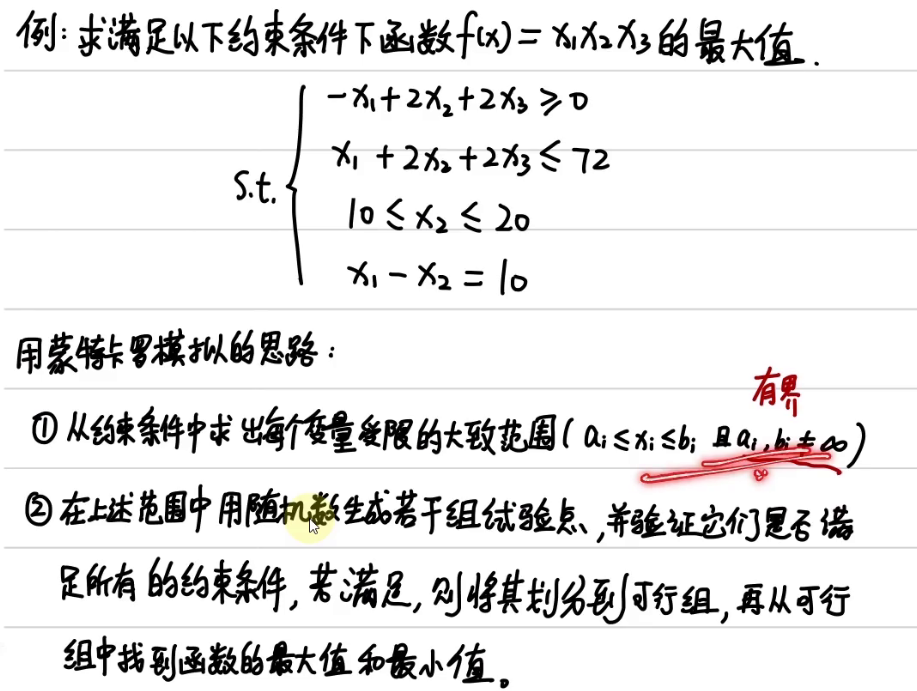 例: 求满足以下约束条件下函数f(x) = x₁x₂x₃的最大值.
-x₁+2x₂+2x₃ ≥ 0
x₁ + 2x₂ + 2x₃ ≤ 72
s.t.
10 ≤ x₂ ≤ 20
x₁ - x₂ = 10
用蒙特卡罗模拟的思路:
有界
① 从约束条件中求出每个变量受限的大致范围( aᵢ ≤ xᵢ ≤ bᵢ 且 aᵢ, bᵢ ≠ ∞)
② 在上述范围中用随机数生成若干组试验点, 并验证它们是否满
足所有的约束条件, 若满足, 则将其划分到可行组, 再从可行
组中找到函数的最大值和最小值。